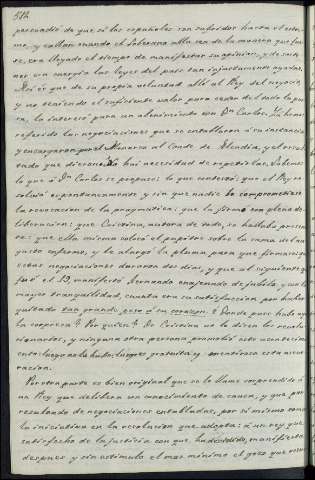 512
persuadió de que si los españoles son sufridos hasta el estre-
mo, y callan cuando el Soberano
se, era llegado el tiempo de manifestar su opinion, y de soste-
ner con energía las leyes del pais tan injustamente ajadas.
Así es que de su propia voluntad al Rey del negocio,
y no teniendo el suficiente valor para ceder del todo la pu-
ra, la interesó para un abenimiento con Dn Carlos. Ya hemos
referido las negociaciones que se entablaron á su instancia
y encargaron por el Monarca al Conde de Alcudia, y el resul-
tado que dieron. No hai necesidad de repetirlas. Sabemos
lo que á Dn Carlos se propuso; lo que contestó; que el Rey re-
solvió espontaneamente y sin que nadie lo comprometiese
la revocacion de la pragmática; que la firmó con plena de-
liberacion; que Cristina, autora de todo, se hallaba presen-
te; que ella misma colocó el pupitre sobre la cama del au-
gusto enfermo, y le alargó la pluma para que firmase; que
estas negociaciones duraron dos dias, y que al siguiente que
fué el 19, manifestó Fernando enajenado de jubilo, y con la
mayor tranquilidad, cuanta era su satisfaccion por haberse
quitado tan grande peso de su corazon. ¿Donde pues hubo aquí
la sorpresa? ¿Por quien? De Cristina no lo dicen los revolu-
cionarios, y ninguna otra persona promovió este acontecimi-
ento: luego no la hubo: luego es gratuita y mentirosa esta acu-
racion.
Por otra parte es bien original que se le llame sorprendido á
un Rey que delibera con conocimiento de causa, y que por
resultado de negociaciones entabladas, por sí mismo toma
la iniciativa en la resolucion que adopta: á un rey que
satisfecho de la justicia con que ha decidido, manifiesta
despues y sin estimulo el mas minimo el gozo que